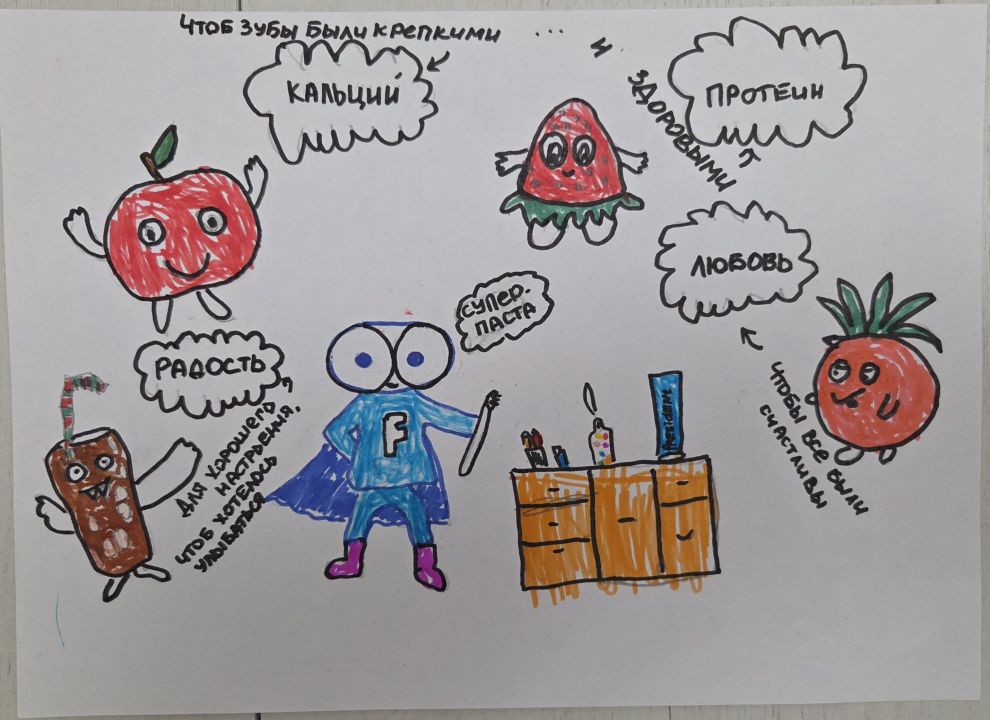 Чтоб зубы были крепкими ... и здоровыми
КАЛЬЦИЙ
ПРОТЕИН
ЛЮБОВЬ
Чтобы все были
счастливы
СУПЕР-
ПАСТА
РАДОСТЬ
Для хорошего
настрыения,
чтоб хотелось
улыбаться
F
President